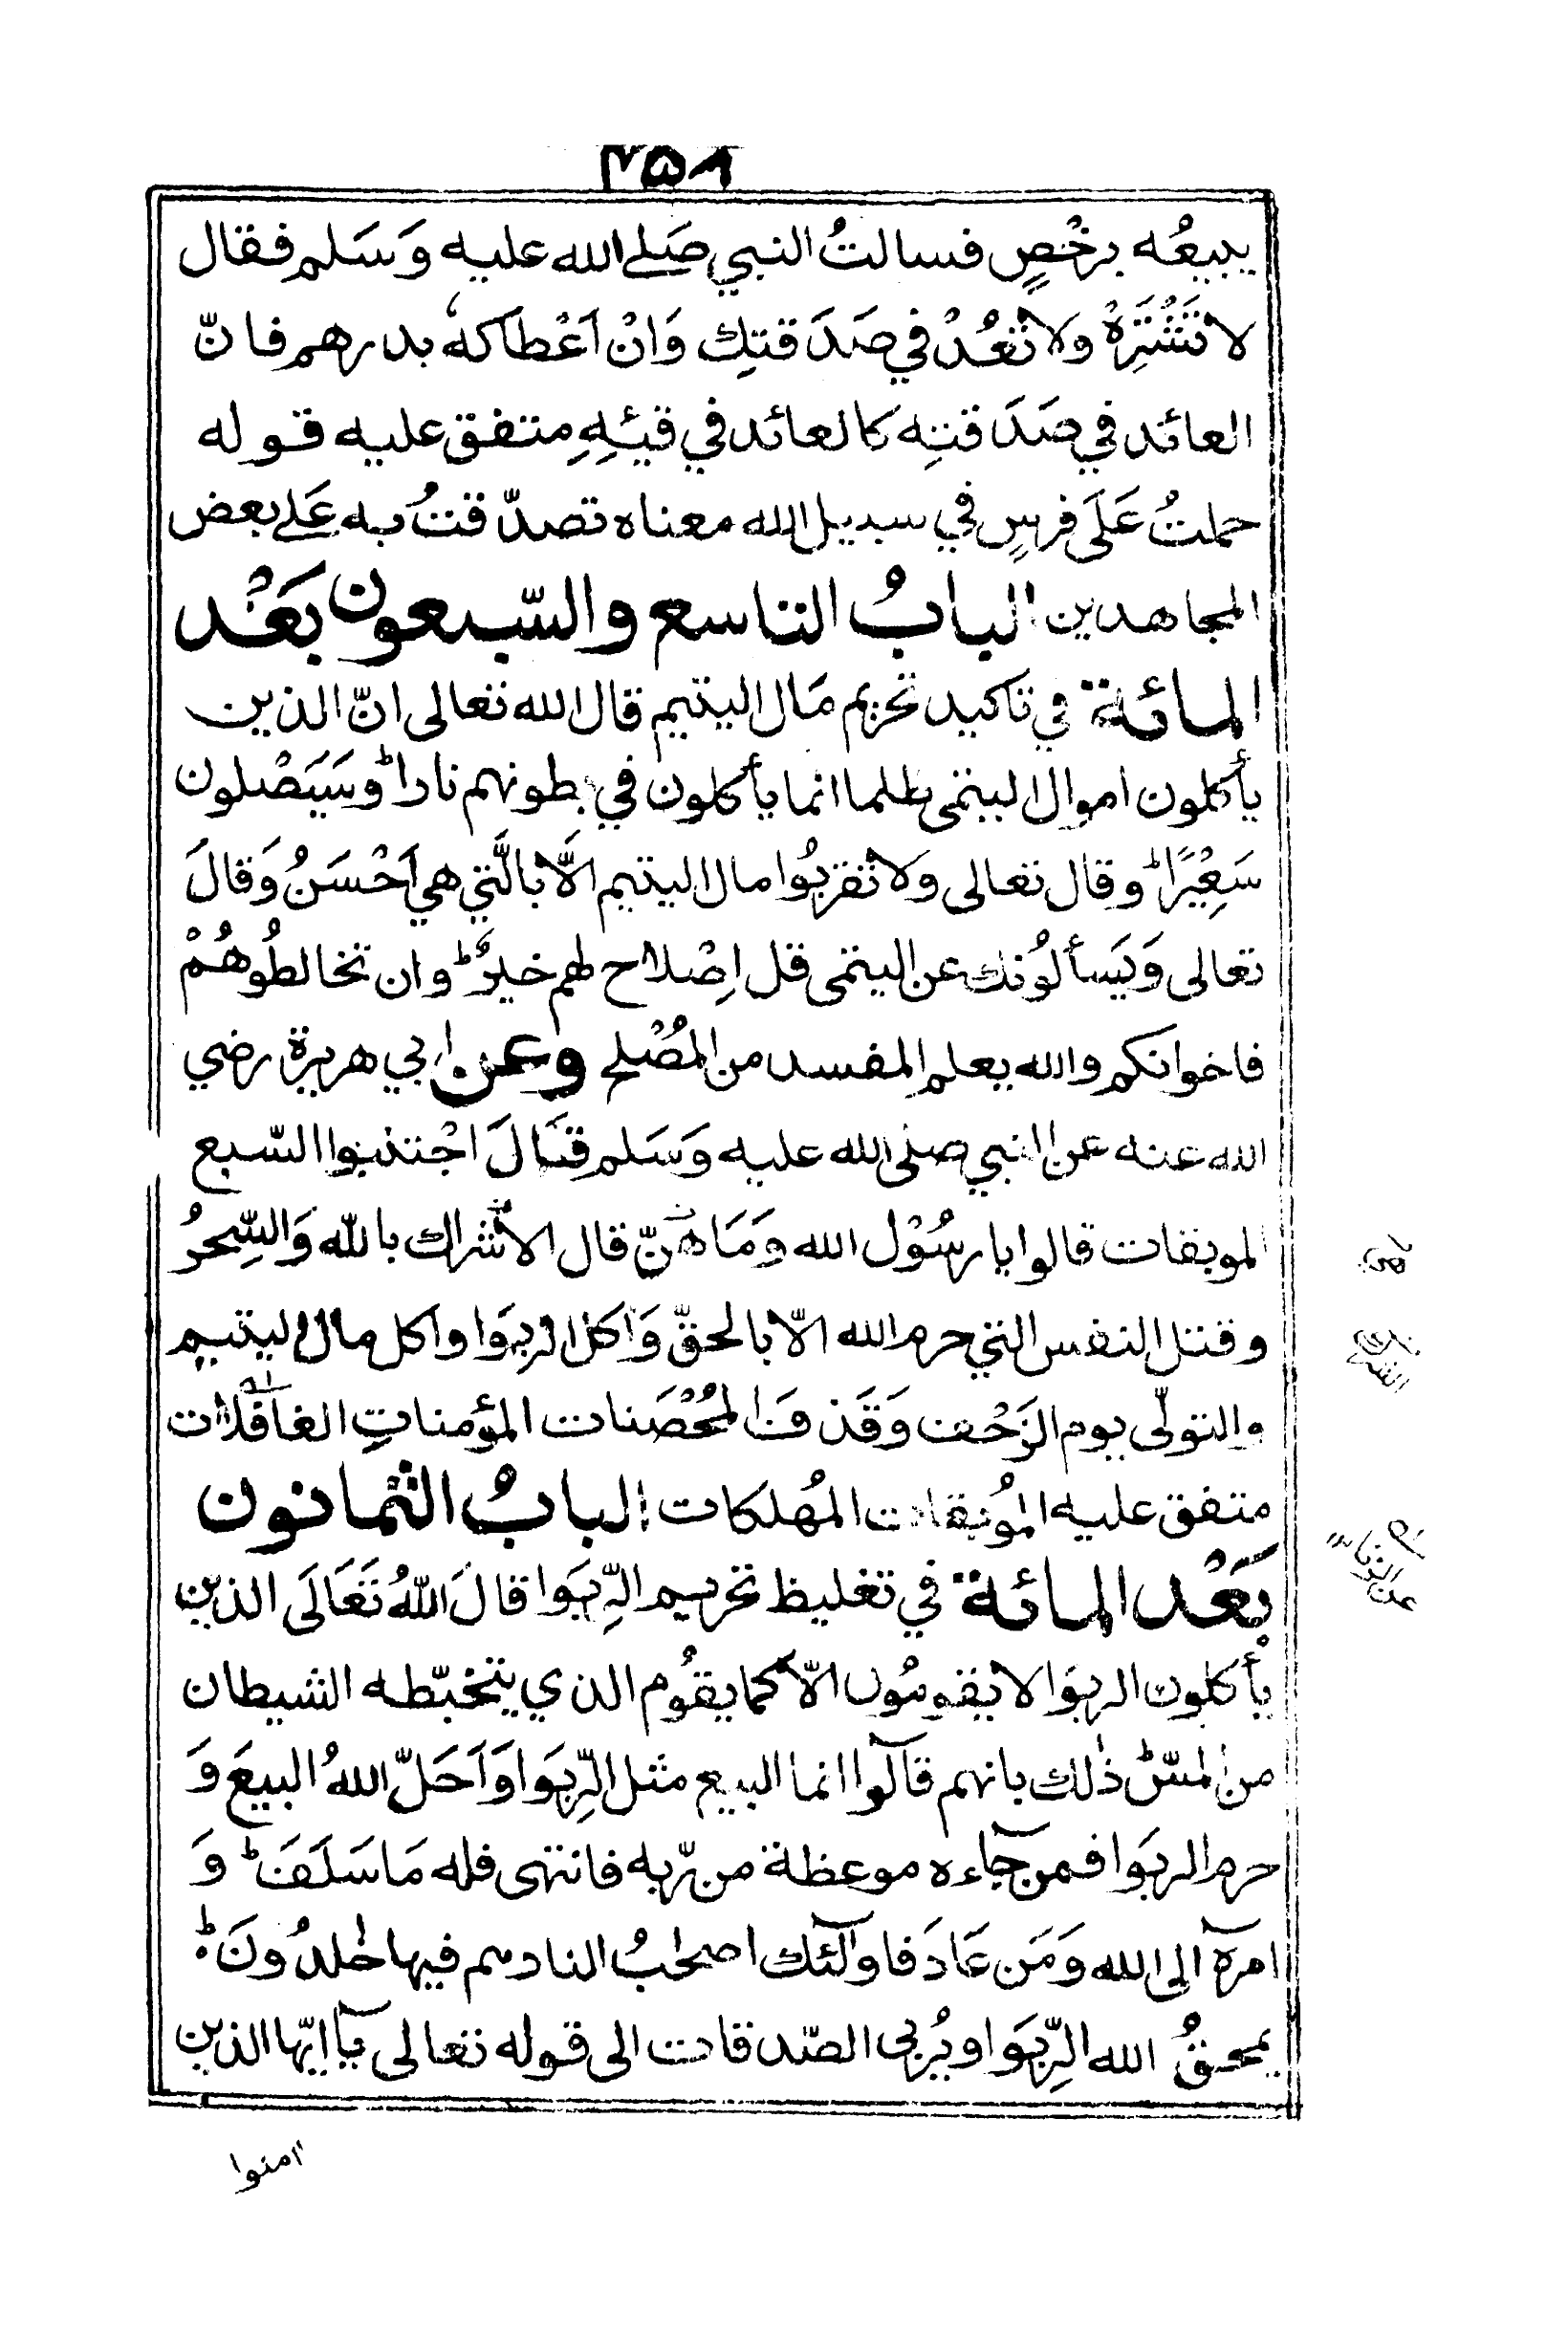 ٣٥٨
يبيعُه برخْصٍ فسالتُ النبي صَلے الله عليه وَسَلم فقال
لا تَشْتَرِهْ ولا تَعُدْ في صَدَقتِك وَانْ اَعْطاكهُ بدرهم فانّ
العائد في صَدَقتِه كالعائد في قيْئِهِ متفق عليه قوله
حملتُ عَلَى فرسٍ في سبيل الله معناه تصدّقتُ به عَلے بعض
المجاهدين البابُ التاسع والسّبعون بَعْد
المائة في تاكيد تحريم مَال اليتيم قال الله تعالى انّ الذين
يأكلون اموال اليتمى ظلما انما يأكلون في بطونهم ناراً وسَيَصْلون
سَعِيْرًا وقال تعالى ولا تقربُوا مال اليتيم الّا بالَّتي هي اَحْسَنُ وَقالَ
تعالى وَيَسألُونك عن اليتمى قل اِصْلاح لهم خيرٌ وان تخالطُوهُمْ
فاخوانكم والله يعلم المفسد من المُصْلح وعن ابي هريرة رضي
الله عنه عن النبي صلى الله عليه وَسَلم قَالَ اجْتنبوا السّبع
الموبقات قالوا يا رسُوْل الله وَمَا هنّ قال الاشراك بالله وَالسِّحرُ
وقتل النفس التي حرم الله الّا بالحقّ وَاكل الربوَا واكل مال اليتيم
والتولّى يوم الزَحْف وَقَذف المُحْصَنات المؤمناتِ الغافلات
متفق عليه المُوبقات المُهلكات البابُ الثمانون
بَعْد المائة في تغليظ تحريم الرِّبَوا قالَ اللهُ تَعَالَى الذين
يأكلون الربوَا لا يقومُون الّا كما يقُوم الذي يتخبّطه الشيطان
من المسّ ذٰلك بانهم قالوٓا انما البيع مثل الرِّبوَا وَاَحَلّ اللهُ البيعَ وَ
حرم الربوَا فمن جآءه موعظة من رّبه فانتهى فله مَا سَلَفَ وَ
امره الى الله وَمَن عَادَ فاولٓئك اصحٰبُ النار هم فيها خٰلدُونَ
يمحقُ الله الرّبوَا ويُربى الصّدقات الى قوله تعالى يٓا ايّها الذين
امنوا